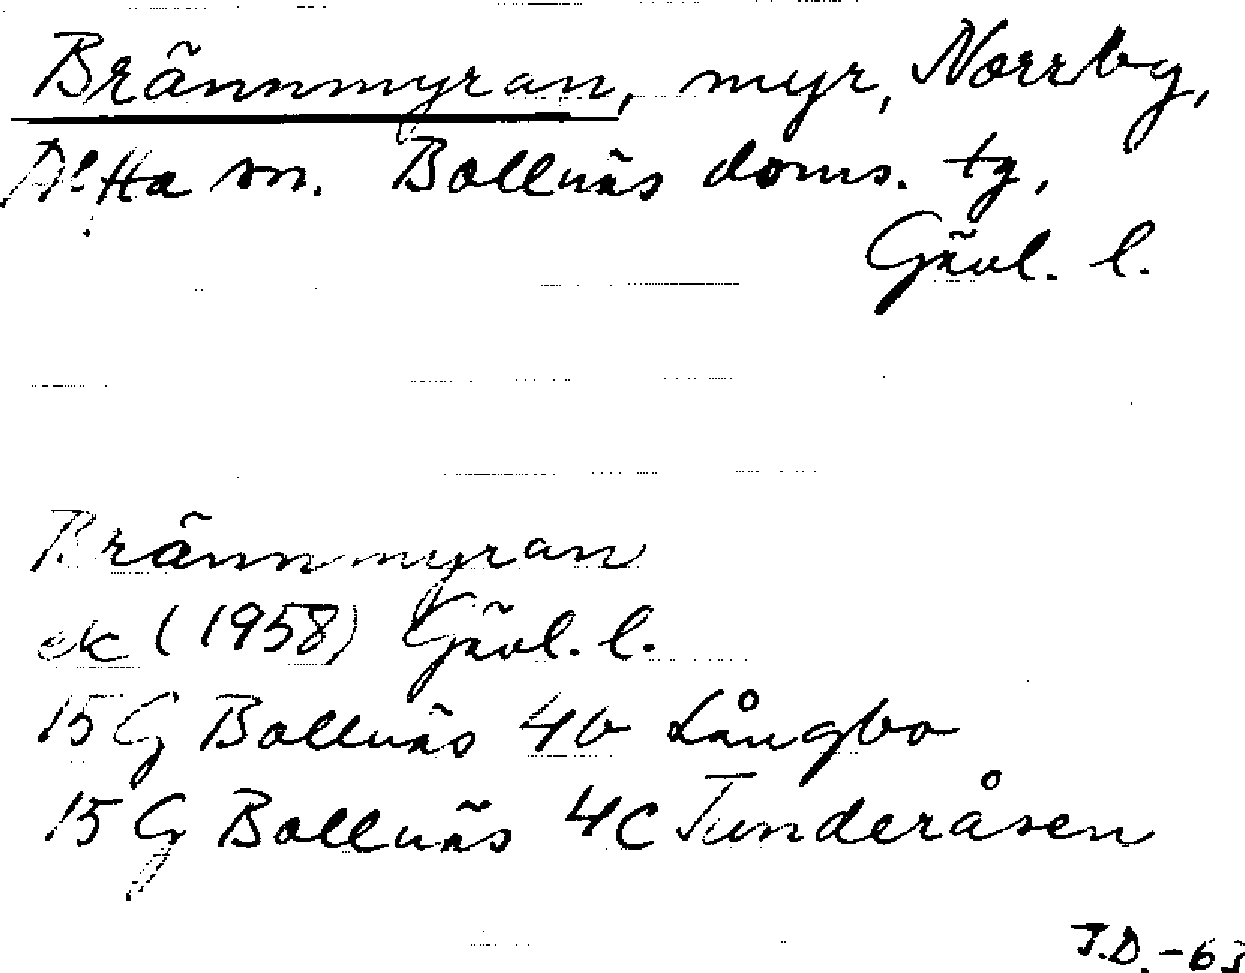 Brännmyran, myr, Norrby,
Alfta sn. Bollnäs doms. tg,
Gävl. l.
Brännmyran
ek (1958) Gävl. l.
15 G Bollnäs 4b Långbo
15 G Bollnäs 4c Tunderåsen
J.D. -63